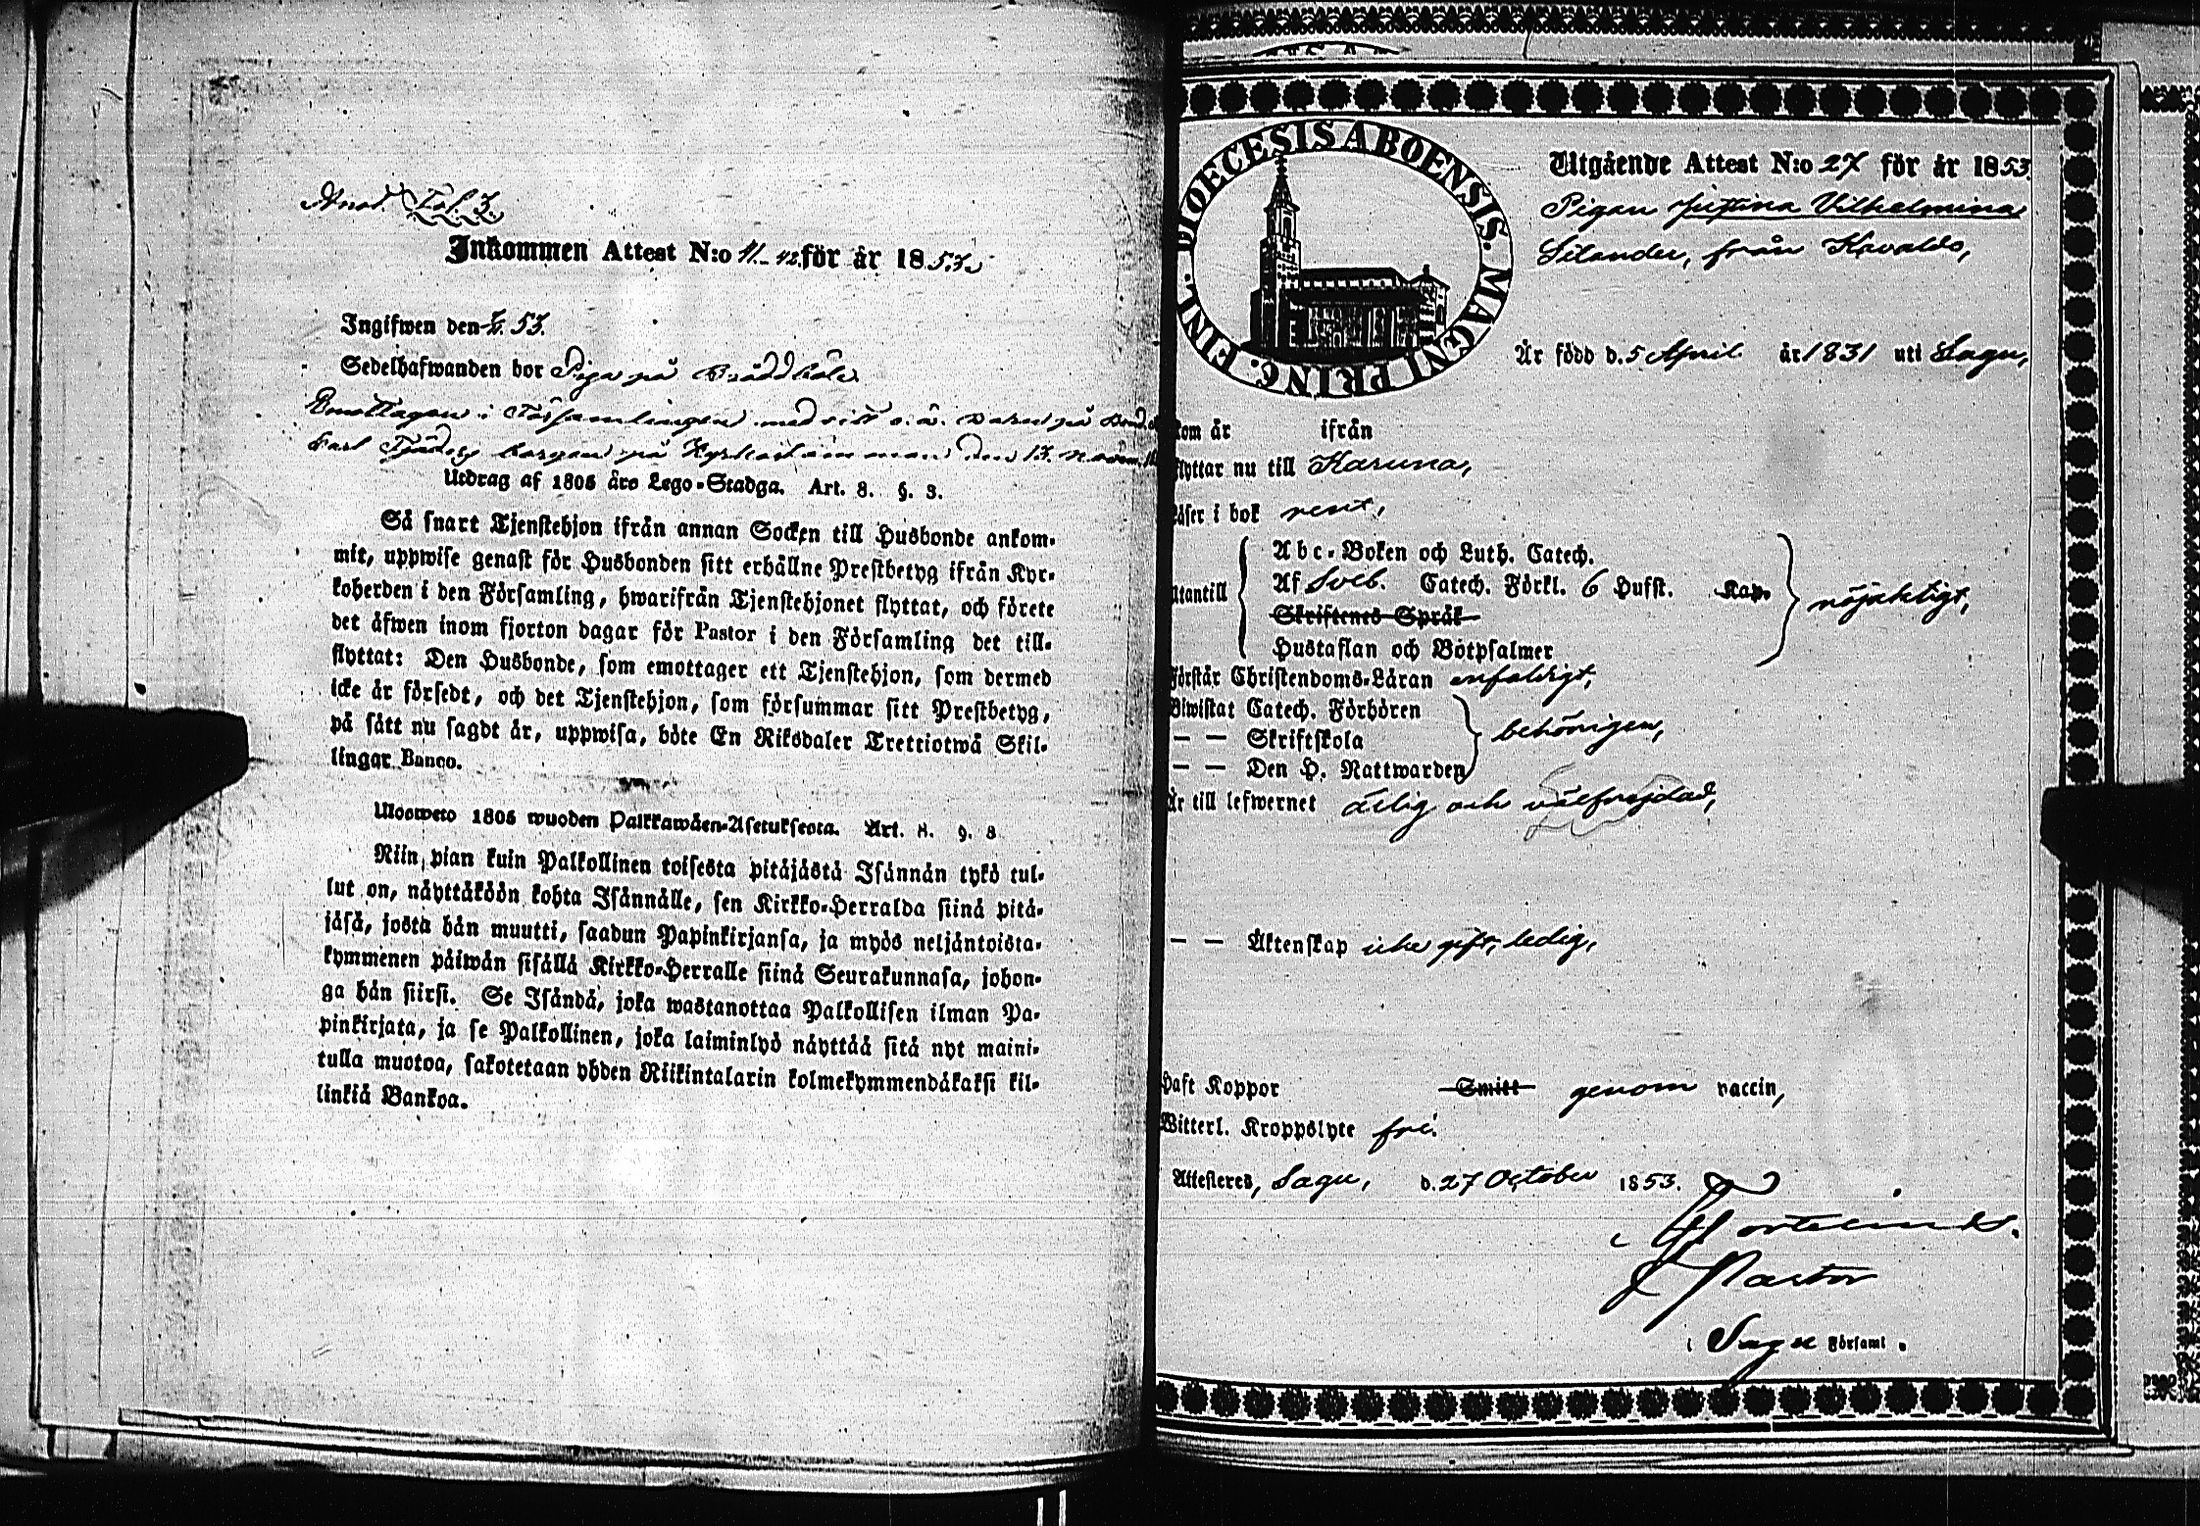 Fol. 3.
Inkommen Attest N:o 41–42 för år 1853.
Ingifwen den 53.
Sedelhafwanden bor Piga på
Emottagen i Församlingen med
Carl borgen på den 13. Novem.
Utdrag af 1805 års Lego-Stadga. Art. 8. §. 3.
Så snart Tjenstehjon ifrån annan Socken till Husbonde ankom-
mit, uppwise genast för Husbonden sitt erhållne Prestbetyg ifrån Kyr-
koherden i den Församling, hwarifrån Tjenstehjonet flyttat, och förete
det äfwen inom fjorton dagar för Pastor i den Församling det till-
flyttat: Den Husbonde, som emottager ett Tjenstehjon, som dermed
icke är försedt, och det Tjenstehjon, som försummar sitt Prestbetyg,
på sätt nu sagdt är, uppwisa, böte En Riksdaler Trettiotwå Skil-
lingar Banco.
Wosweto 1805 wuoden Palkkawäen-Asetuksesta. Art. 8. §. 3
Niin pian kuin Palkollinen toisesta pitäjästä Isännän tykö tul-
lut on, näyttäköön kohta Isännälle, sen Kirkko-Herralda siinä pitä-
jäsä, josta hän muutti, saadun Papinkirjansa, ja myös neljäntoista-
kymmenen päiwän sisällä Kirkko-Herralle siinä Seurakunnasa, johon-
ga hän siirsi. Se Isändä, joka wastanottaa Palkollisen ilman Pa-
pinkirjata, ja se Palkollinen, joka laiminlyö näyttää sitä nyt maini-
tulla muotoa, sakotetaan yhden Riikintalarin kolmekymmendäkaksi kil-
linkiä Bankoa.
DIOECESIS ABOENSIS. MAGNI PRINC. FINL.
Utgående Attest N:o 27 för år 1853.
Pigan Justina Vilhelmina
Silander, från Kavalds,
Är född d. 5 April år 1831 uti Sagu,
kom år ifrån
flyttar nu till Karuna,
läser i bok rent,
Abc-Boken och Luth. Catech.
utantill Af Sveb. Catech. Förkl. 6 Hufst. Kap. nöjaktigt,
Skriftenes Språk
Hustaflan och Botpsalmer
Förstår Christendoms-Läran enfaldigt,
Biwistat Catech. Förhören
— — Skriftskola behörigen,
— — Den H. Nattwarden
Är till lefwernet ärlig och välfrejdad,
— — Äktenskap icke gift, ledig,
Haft Koppor Smitt genom vaccin,
Witterl. Kroppslyte fri.
Attesteres, Sagu, d. 27 October 1853.
Pastor
i Sagu Församl.